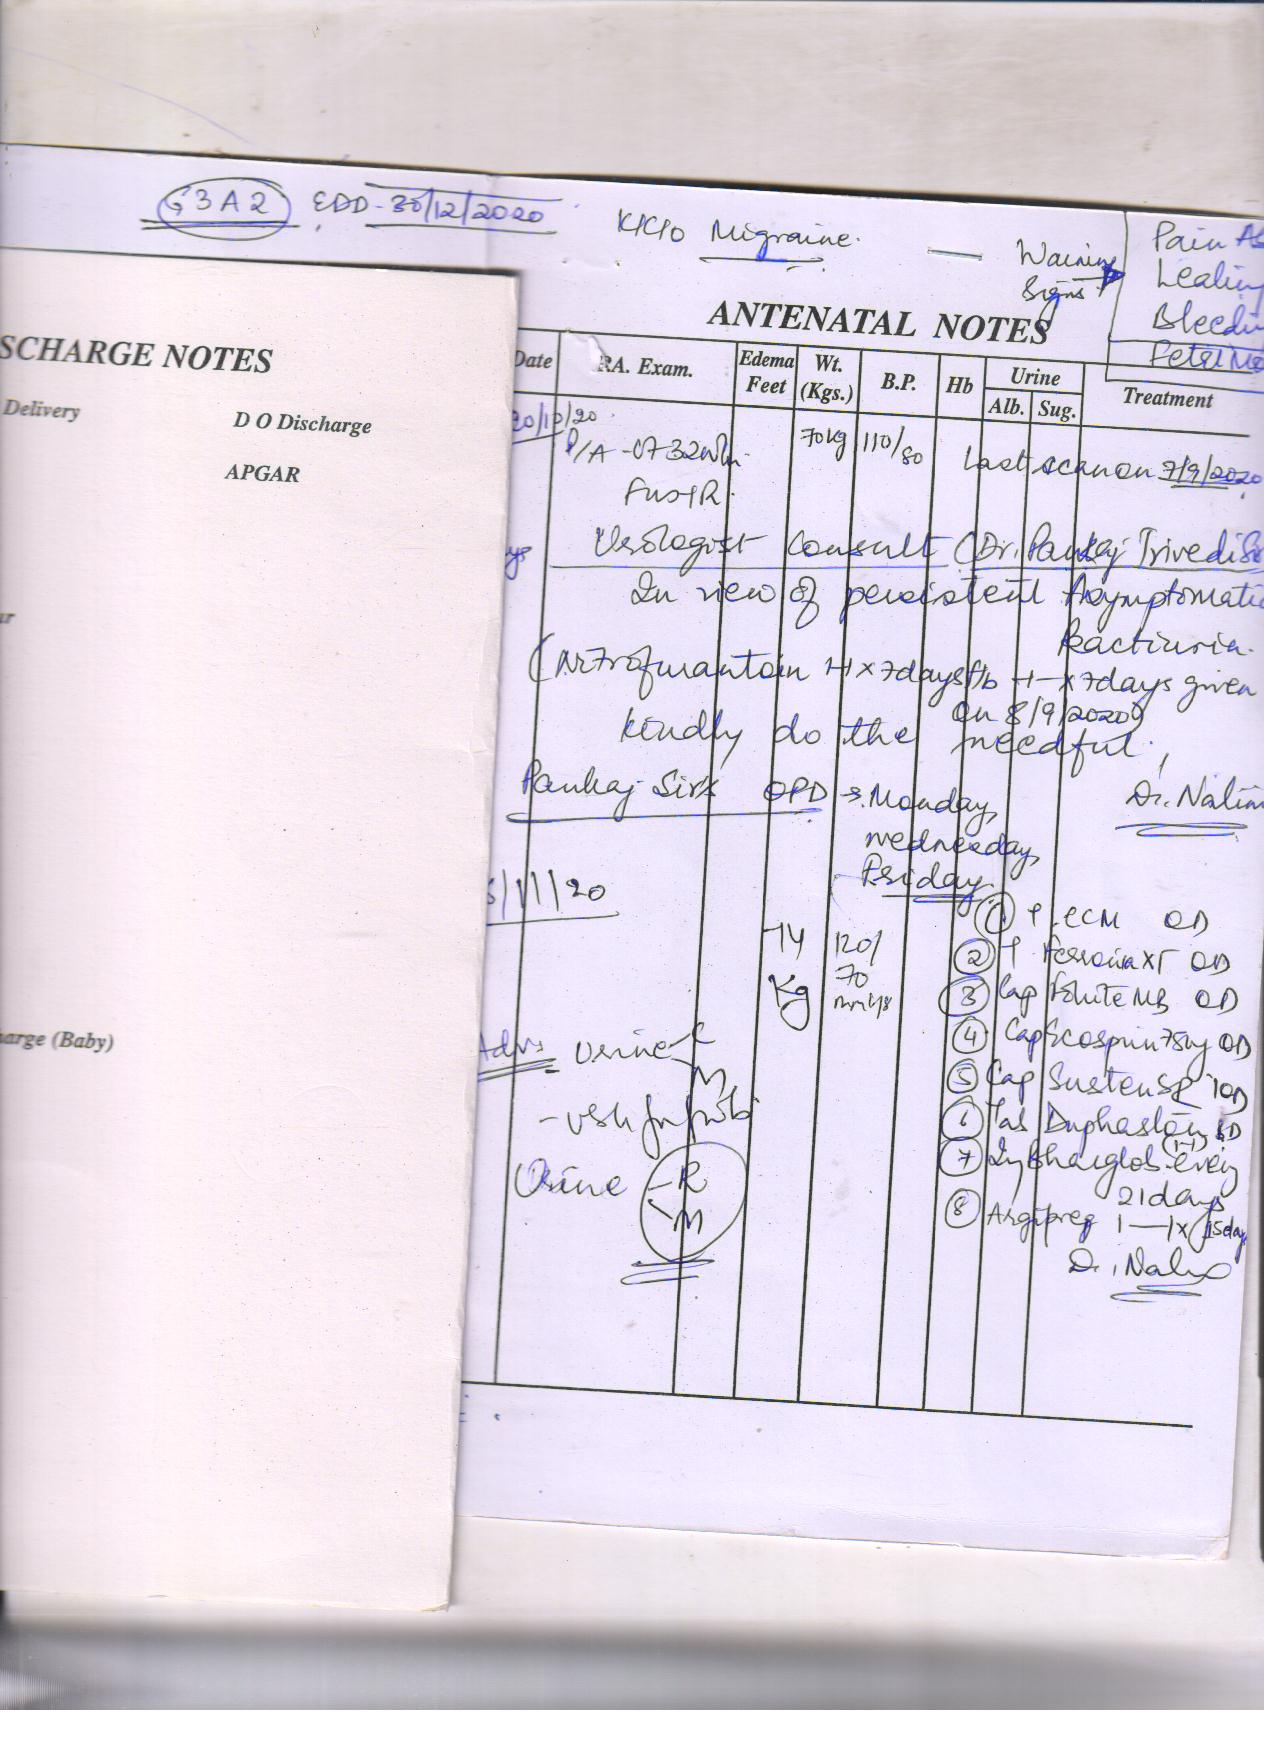 G3A2 EDD-30/12/2020
K/C/O Migraine.
Warning
Signs
Pain Ab
Leakin
Bleedin
Fetal Mo
ANTENATAL NOTES
SCHARGE NOTES
Delivery
D O Discharge
APGAR
ur
harge (Baby)
Date P.A. Exam. Edema Feet Wt. (Kgs.) B.P. Hb Urine Alb. Sug. Treatment
20/10/20
P/A 32wk 70kg 110/80 Last scan on 7/9/2020
FHS+R
ys
Urologist Consult (Dr. Pankaj Trivedi Si
In view of persistent Asymptomatic
Bactiuria.
(Nitrofurantoin 1-1 x 7days f/b 1-1 x 7days given
on 8/9/2020)
kindly do the needful.
Dr. Nalin
Pankaj Sir's OPD → Monday,
wednesday,
Friday
/11/20
74 Kg
120/70 mmHg
① T. CCM OD
② T. XT OD
③ Cap Folite MB OD
④ Cap Ecosprin 75mg OD
⑤ Cap Susten SR OD
⑥ Tab Duphaston BD
(1-1)
⑦ Inj Bharglob every
21 days
⑧ Argipreg 1—1 x 15days
Dr.
Adv
Urine C
M
Urine - R
M